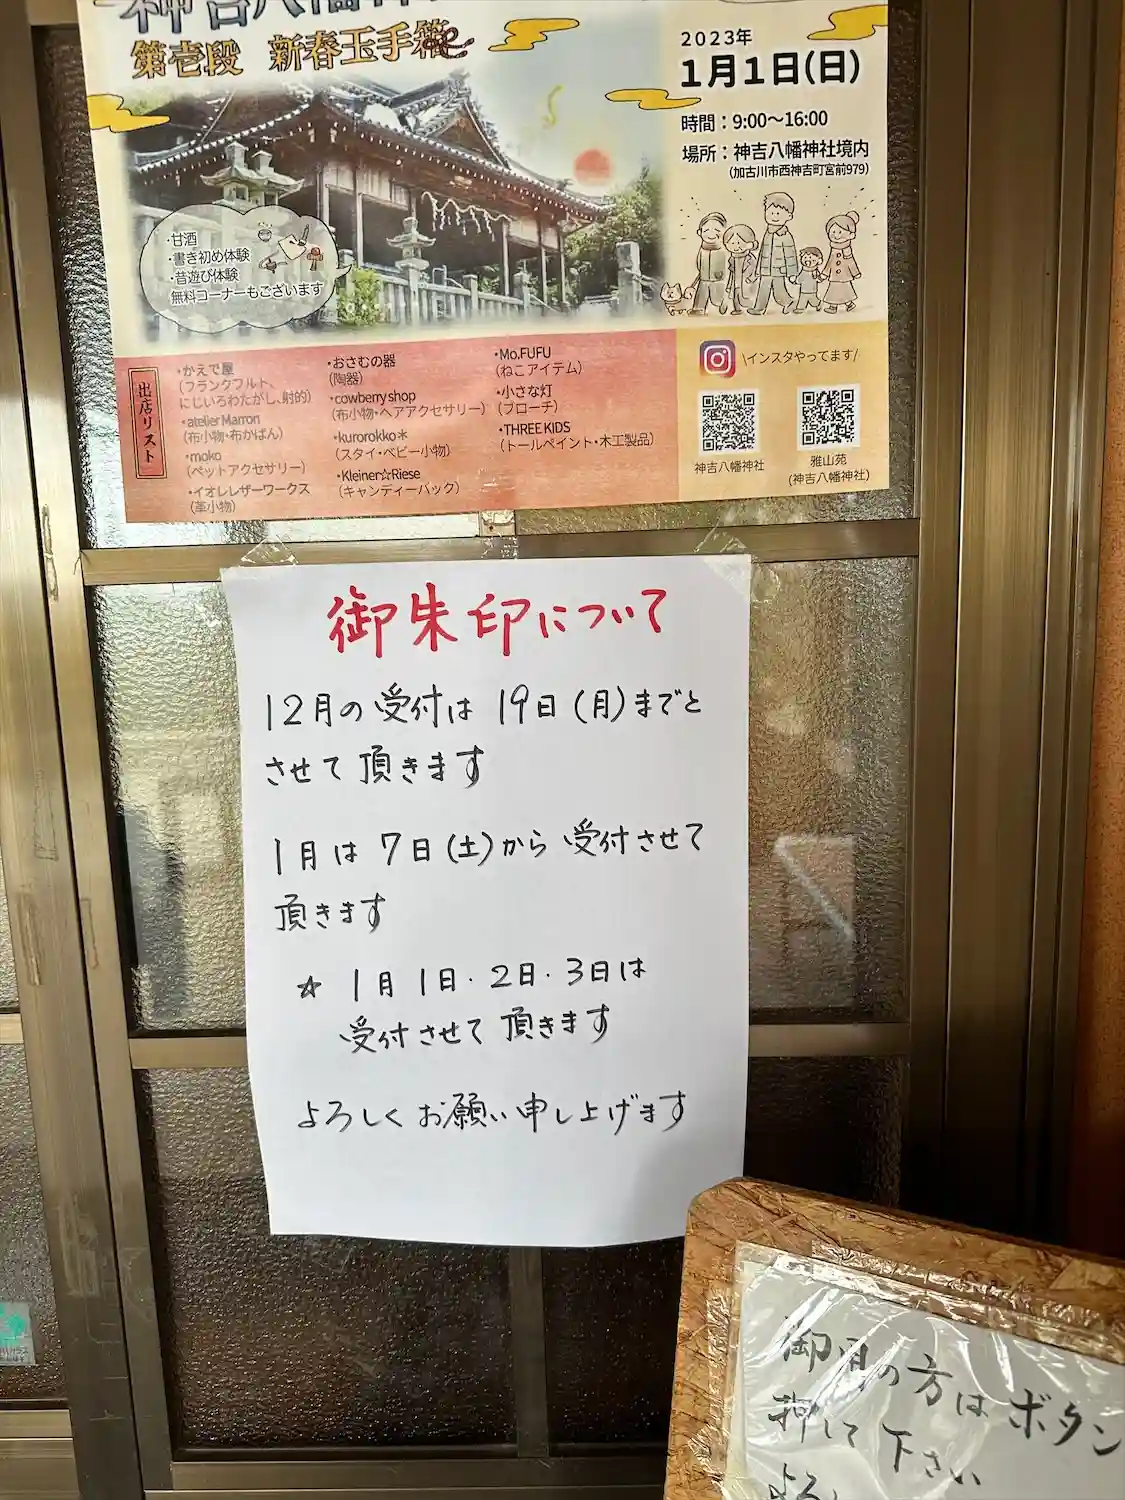 神吉八幡神
第壱段 新春玉手箱
2023年
1月1日(日)
時間：9:00〜16:00
場所：神吉八幡神社境内
(加古川市西神吉町宮前979)
・甘酒
・書き初め体験
・昔遊び体験
無料コーナーもございます
出店リスト
・かえで屋
(フランクフルト、
にじいろわたがし、射的)
・atelier Marron
(布小物・布かばん)
・moko
(ペットアクセサリー)
・イオレレザーワークス
(革小物)
・おさむの器
(陶器)
・cowberry shop
(布小物・ヘアアクセサリー)
・kurorokko＊
(スタイ・ベビー小物)
・Kleiner☆Riese
(キャンディーバック)
・Mo.FUFU
(ねこアイテム)
・小さな灯
(ブローチ)
・THREE KIDS
(トールペイント・木工製品)
\インスタやってます/
神吉八幡神社
雅山苑
(神吉八幡神社)
御朱印について
12月の受付は 19日(月)までと
させて頂きます
1月は 7日(土)から 受付させて
頂きます
☆ 1月 1日・2日・3日は
受付させて頂きます
よろしくお願い申し上げます
御用の方はボタン
押して下さい